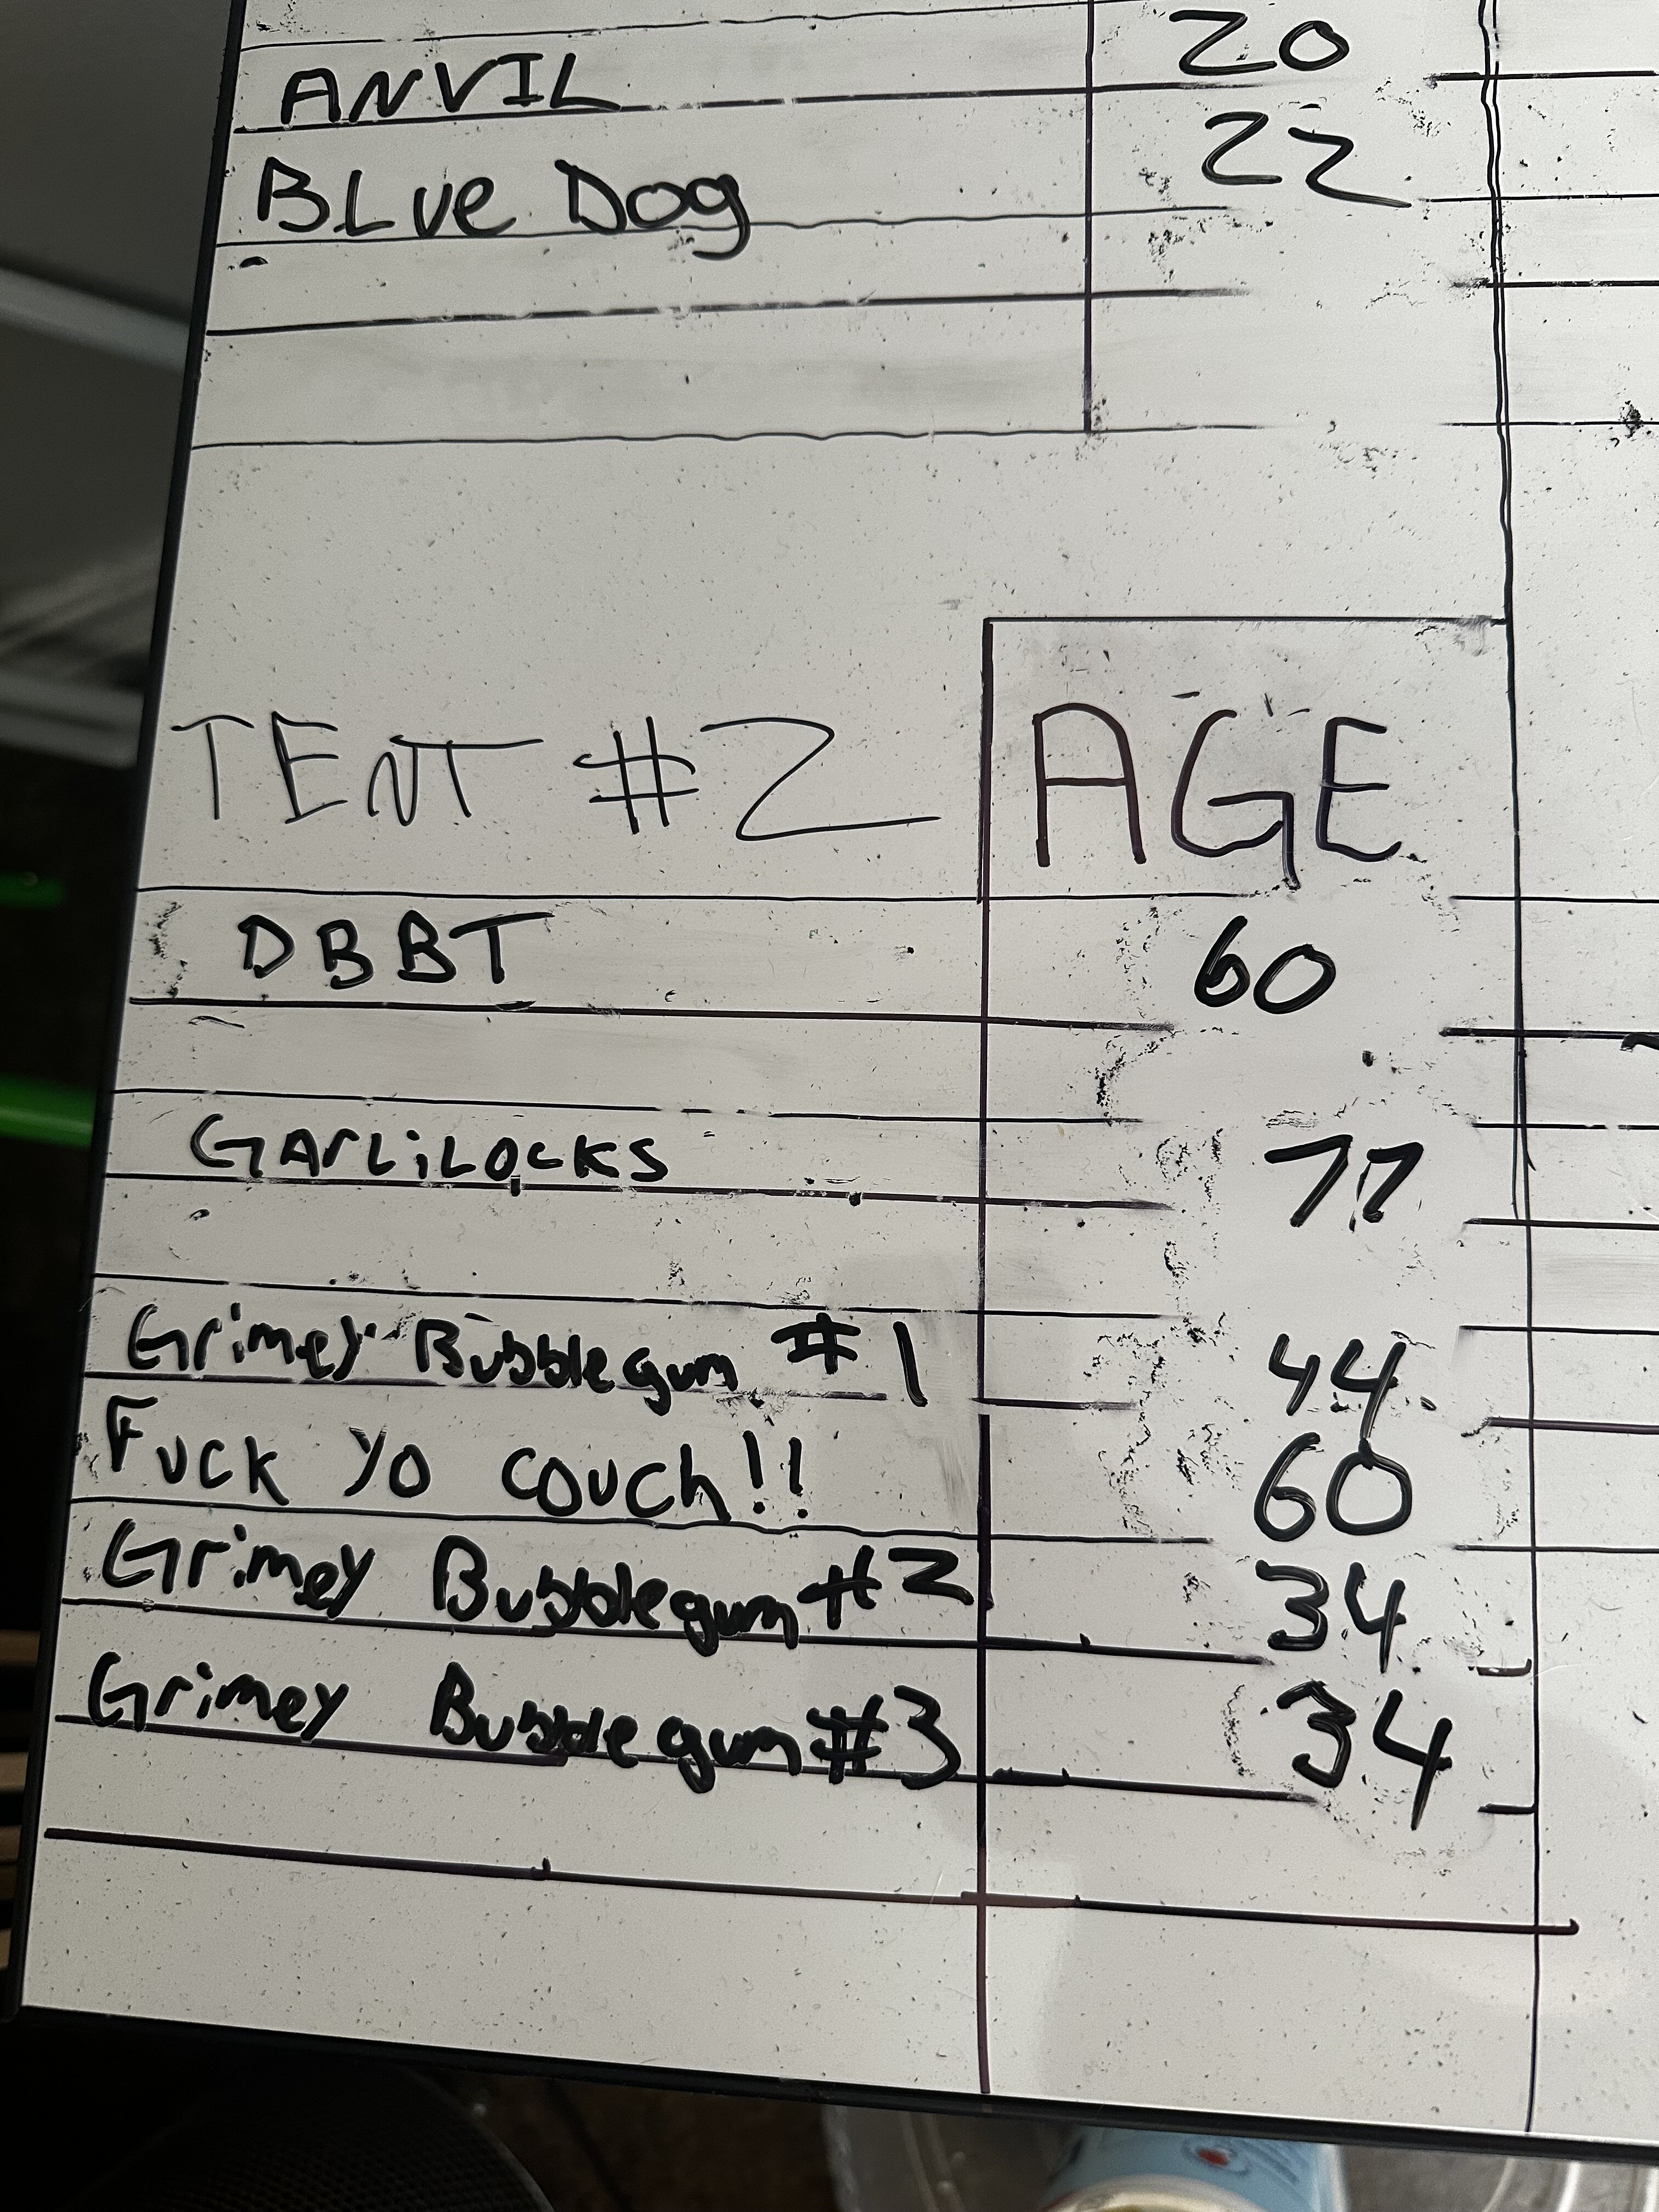 ANVIL 20
BLUE Dog 22
TENT #2 AGE
DBBT 60
GARLiLOCKS 77
Grimey Bubblegum #1 44
FUCK YO COUCh!! 60
Grimey Bubblegum #2 34
Grimey Bubblegum #3 34